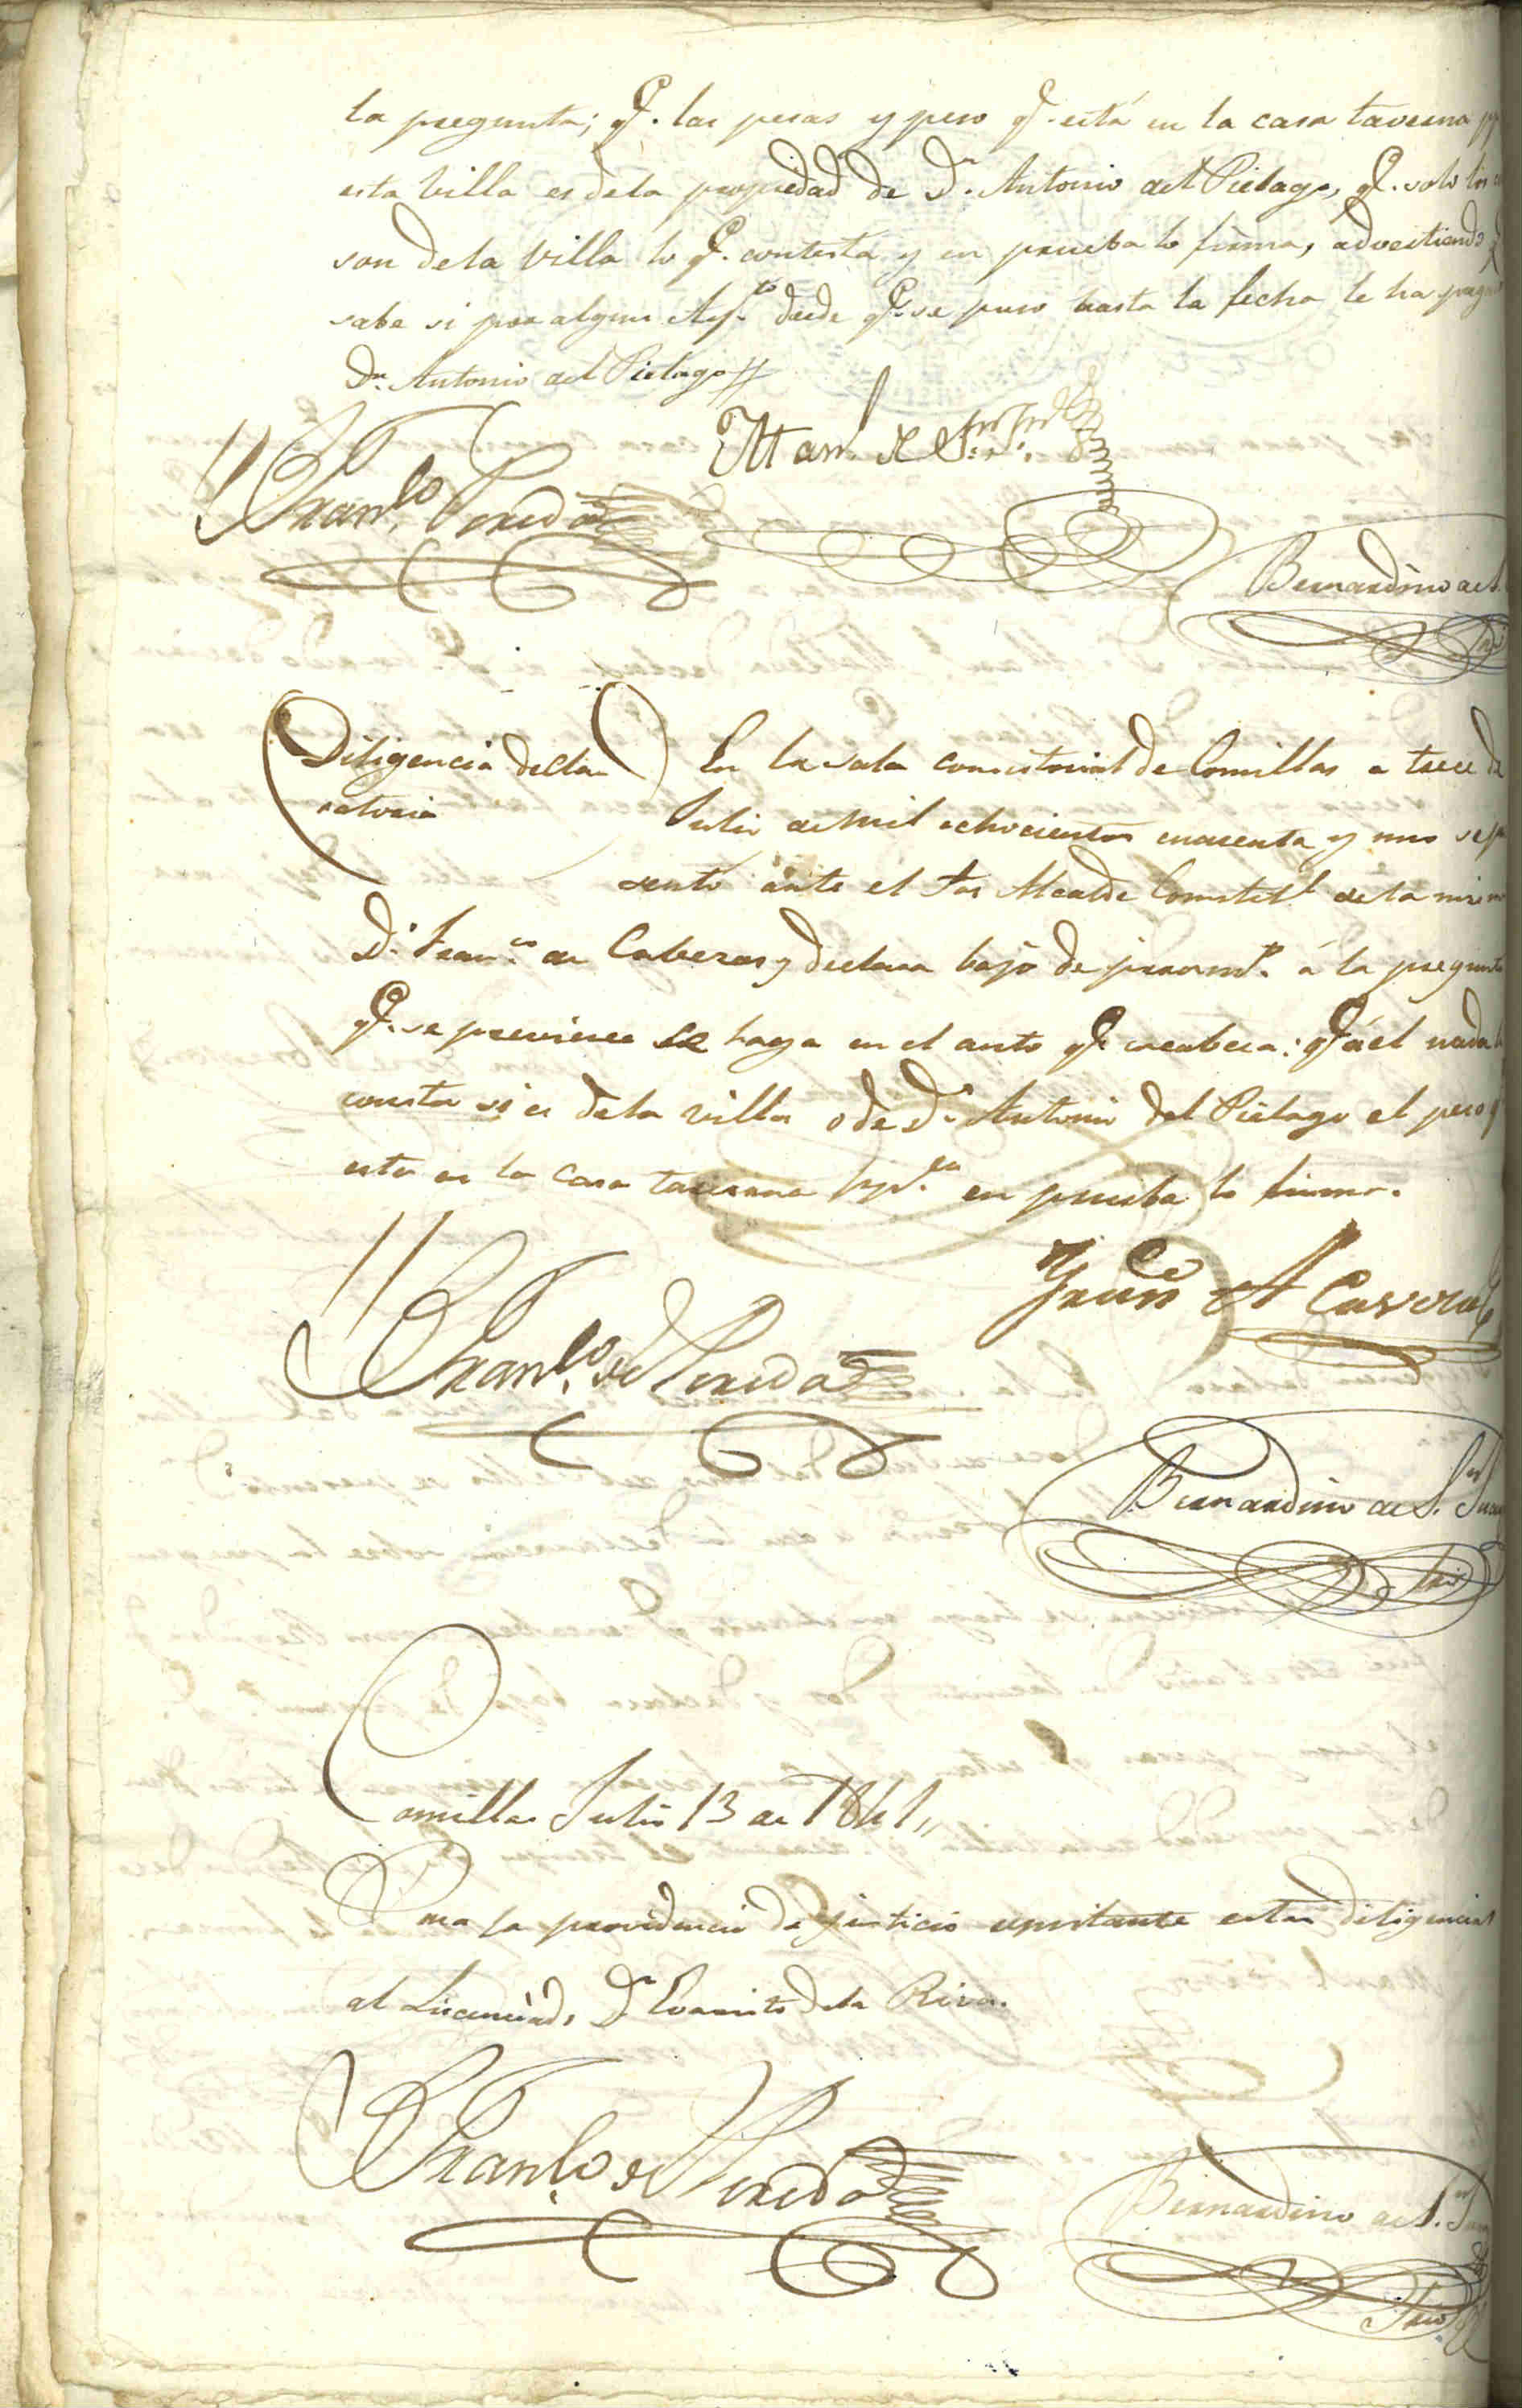 la pregunta; q.e las pesas y peso q.e está en la casa taverna
esta Villa es dela propiedad de D.n Antonio del Piélago, q.e solo
son dela Villa lo q.e contesta y en prueba lo firma, advirtiendo
sabe si por algun Ay.to desde q.e se puso hasta la fecha le ha
D.n Antonio del Piélago
Man.l
Fran.co Pereda
Bernardino de
Diligencia decla
ratoria
En la sala consistorial de Comillas a trece de
Julio de mil ochocientos cuarenta y uno se
sentó ante el Sor Alcalde Constit.l de la misma
D.n Fran.co de Caberas y declara bajo de juram.to á la pregunta
q.e se previene se haga en el auto q.e encabeza: q.e á el nada
consta si es dela villa o de D.n Antonio del Piélago el peso
esta en la casa taverna en prueba lo firma.
Fran.co
Fran.co de Pereda
Bernardino de S.n Juan
Srio
Comillas Julio 13 de 1841,,
Para la providencia de justicia estas diligencias
al Licenciado D.n Evaristo dela Riva.
Fran.co de Pereda
Bernardino de S.n
Srio